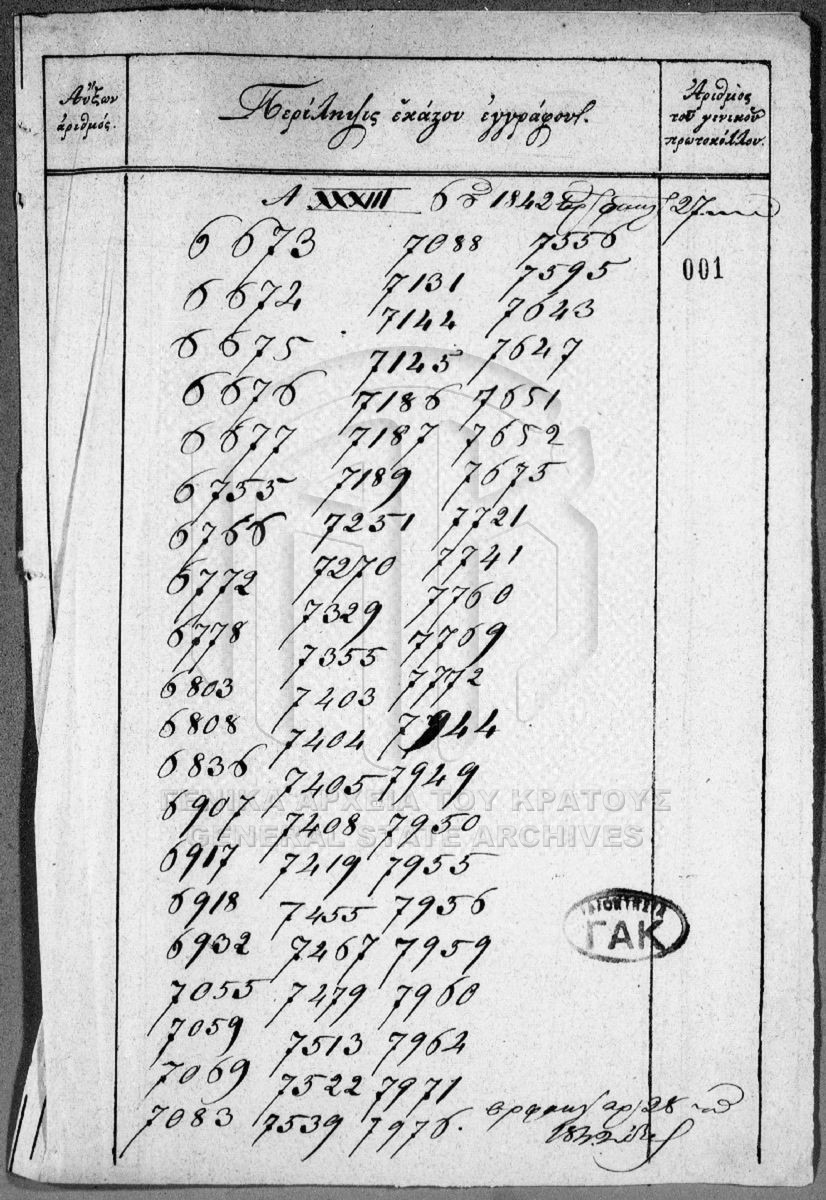 Αὔξων
ἀριθμός.
Περίληψις ἑκάστου ἐγγράφου.
Ἀριθμὸς
τοῦ γενικοῦ
πρωτοκόλλου.
XXXIII 1842 27
001
6673 7088 7556
6672 7131 7595
6675 7144 7643
6676 7145 7647
6677 7186 7651
6755 7187 7652
6766 7189 7675
6772 7251 7721
6778 7270 7741
6803 7329 7760
6808 7355 7769
6836 7403 7772
6907 7404 7944
6917 7405 7949
6918 7408 7950
6932 7419 7955
7055 7455 7956
7059 7467 7959
7069 7479 7960
7083 7513 7962
7522 7971
7539 7976.
28
1842
ΓΕΝΙΚΑ ΑΡΧΕΙΑ ΤΟΥ ΚΡΑΤΟΥΣ
GENERAL STATE ARCHIVES
ΙΔΙΟΚΤΗΣΙΑ
ΓΑΚ